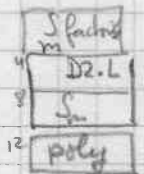 S factors
m
4 D2.L
8 Sm
12 poly